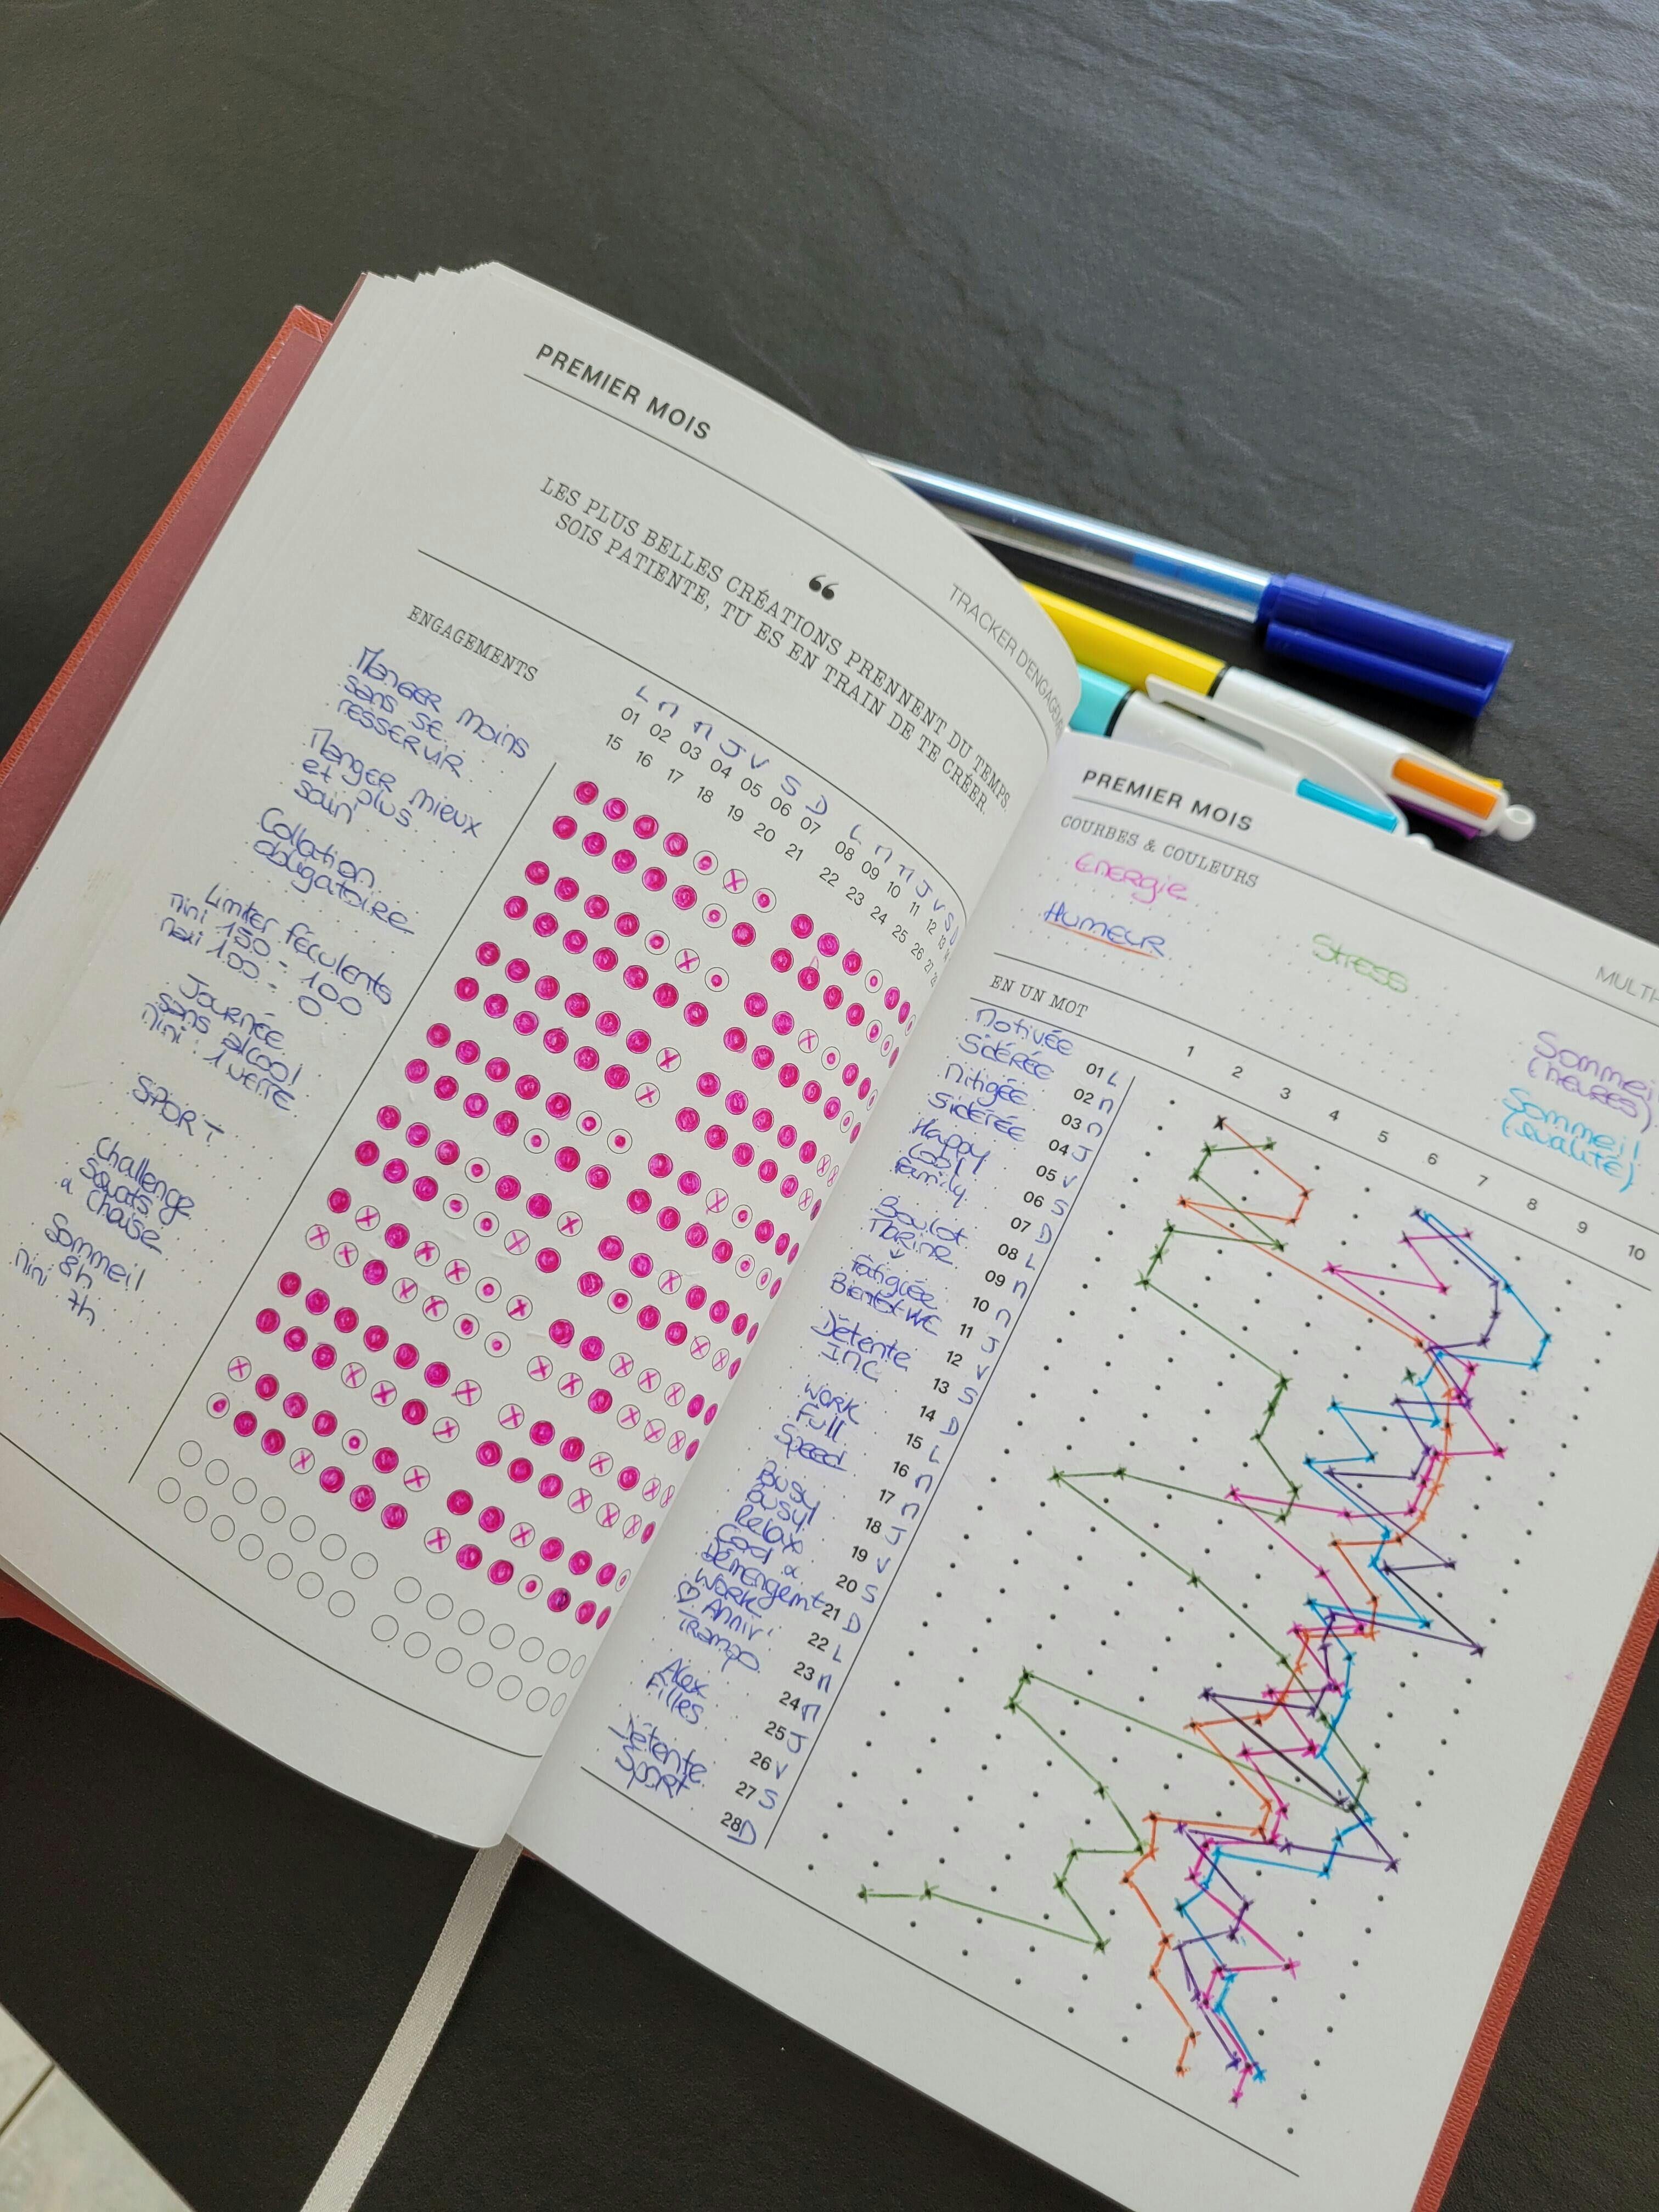 PREMIER MOIS
TRACKER D'ENGAGEME
“
LES PLUS BELLES CRÉATIONS PRENNENT DU TEMPS.
SOIS PATIENTE, TU ES EN TRAIN DE TE CRÉER.
ENGAGEMENTS
L M M J V S D L M M J V S D
01 02 03 04 05 06 07 08 09 10 11 12 13 14
15 16 17 18 19 20 21 22 23 24 25 26 27 28
MANGER MOINS
SANS SE
RESSERVIR
MANGER MIEUX
et plus
sain
Collation
obligatoire
Limiter féculents
mini 150 - 100
maxi 100 - 0
Journée
sans alcool
mini : 1 verre
SPORT
Challenge
squats
à chaise
Sommeil
8h
mini 7h
PREMIER MOIS
COURBES & COULEURS
MULTI
Energie
HUMEUR
Stress
Sommeil
(heures)
Sommeil
(qualité)
EN UN MOT
1 2 3 4 5 6 7 8 9 10
Motivée 01 L
Sidérée 02 M
Mitigée 03 M
Sidérée 04 J
Happy 05 V
Cool 06 S
Family 07 D
Boulot 08 L
09 M
Fatiguée 10 M
Bientôt WE 11 J
12 V
Détente 13 S
INC 14 D
WORK 15 L
Full 16 M
Speed 17 M
Busy 18 J
Busy 19 V
Relax 20 S
Démengemt 21 D
WORK 22 L
♡ Anniv 23 M
Tramp. 24 M
Alex 25 J
Filles 26 V
Détente 27 S
Sport 28 D